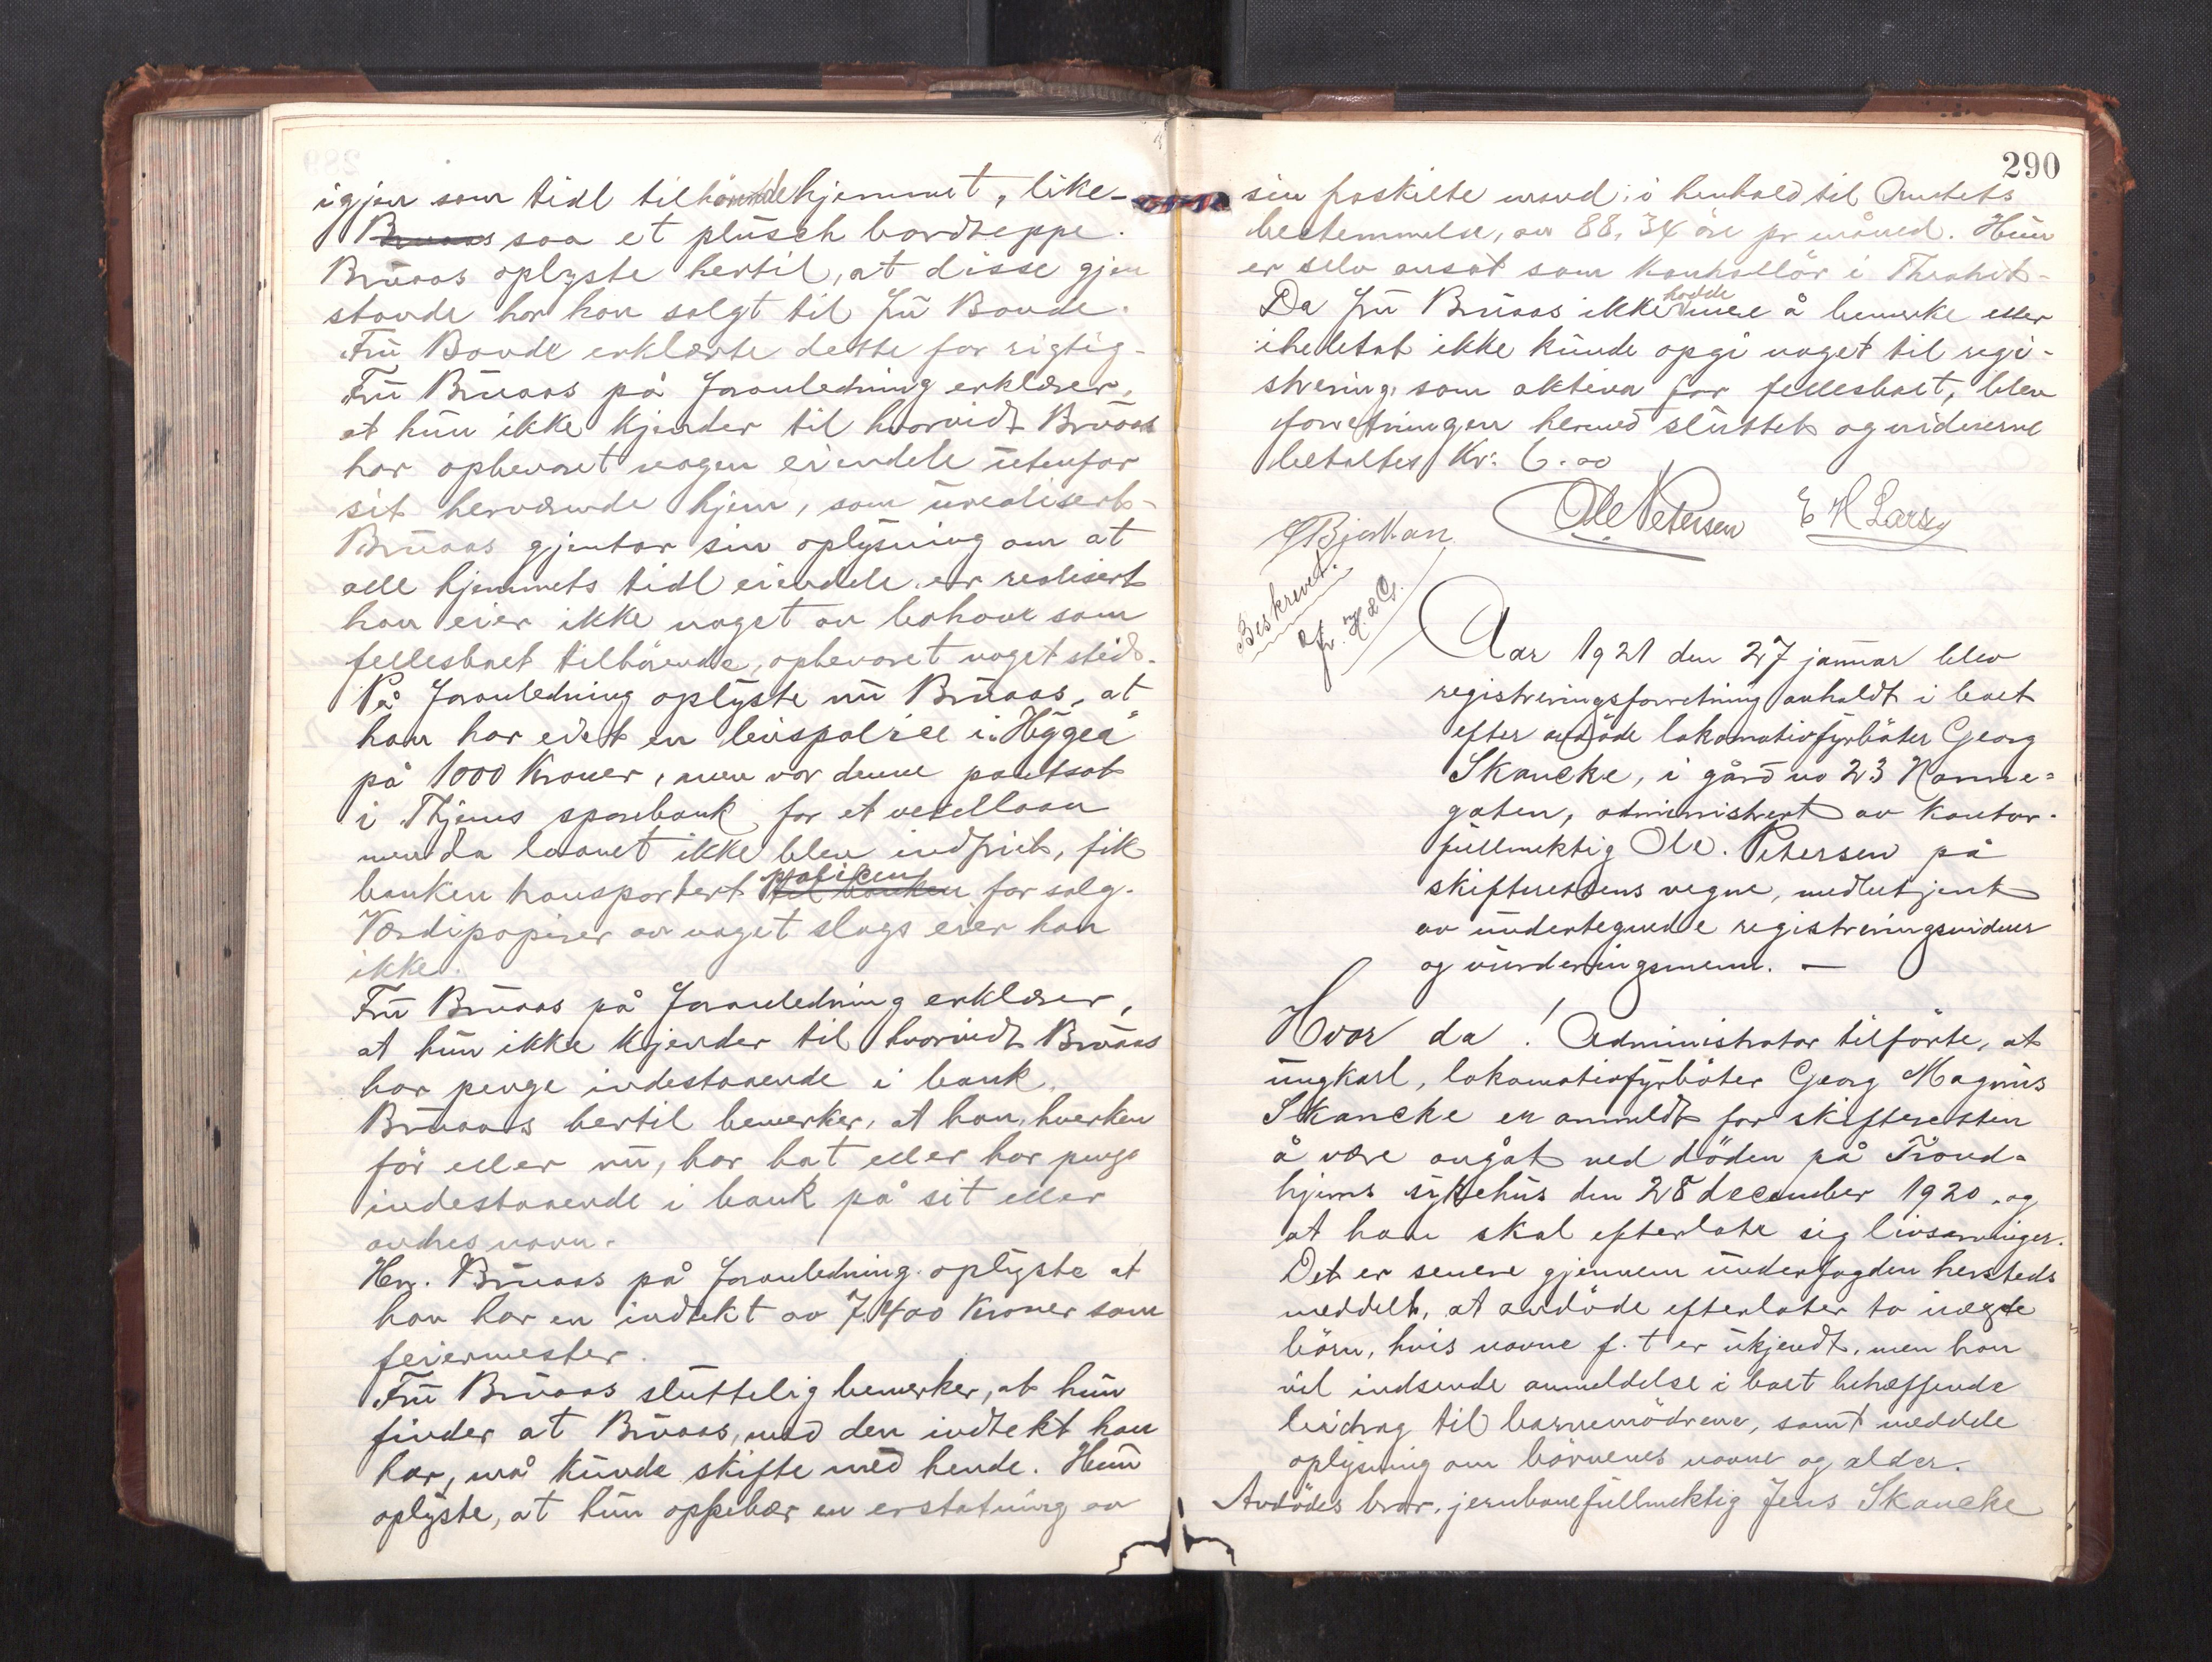 igjen som tidl tilhørende hjemmet, like-
Bruaas saa et plüsch bordteppe.
Bruaas oplyste hertil, at disse gjen
stande har han solgt til fru Baade.
Fru Baade erklærte dette for rigtig-
Fru Bruaas på foranledning erklærer,
at hun ikke kjender til hvorvidt Bruaas
har opbevaret nogen eiendele utenfor
sit herværende hjem, som urealisert-
Bruaas gjentar sin oplysning om at
alle hjemmets tidl eiendele er realisert
han eier ikke noget av bohave som
fellesboet tilhørende, opbevaret noget sted.
På foranledning oplyste nu Bruaas, at
han har eiet en livspolice i "Hygea"
på 1000 Kroner, men var denne pantsat
i Thjems sparebank for et veksellaan
men da laanet ikke blev indfriet, fik
banken transportert policen til banken for salg.
Værdipapirer av noget slags eier han
ikke.
Fru Bruaas på foranledning erklærer,
at hun ikke kjender til hvorvidt Bruaas
har penge indestaaende i bank.
Bruaas hertil bemerker, at han, hverken
før eller nu, har hat eller har penge
indestaaende i bank på sit eller
andres navn.
Hr. Bruaas på foranledning oplyste at
han har en indtekt av 7.400 Kroner som
feiermester.
Fru Bruaas sluttelig bemerker, at hun
finder at Bruaas, med den indtekt han
har, må kunde skifte med hende. Hun
oplyste, at hun oppebær en erstatning av
290
sin fraskilte mand, i henhold til Amtets
bestemmelse, av 88,34 øre pr måned. Hun
er selv ansat som kontrollør i
Da fru Bruaas ikke hadde mere å bemerke eller
iheletat ikke kunde opgi noget til regi-
strering som aktiva for fellesboet, blev
forretningen hermed sluttet og vidnerne
betaltes Kr: 6.00
Ole Petersen E H Larsen
Beskrevet.
Aar 1921 den 27 januar blev
registreringsforretning avholdt i boet
efter avdøde lokomotivfyrbøter Georg
Skancke, i gård no 23 Nonne-
gaten, administrert av kontor-
fullmektig Ole. Petersen på
skifterettens vegne, medbetjent
av undertegnede registreringsvidner
og vurderingsmenn. —
Hvor da! Administrator tilførte, at
ungkarl, lokomotivfyrbøter Georg Magnus
Skancke er anmeldt for skifteretten
å være avgåt ved døden på Trond-
hjems sykehus den 28 december 1920, og
at han skal efterlate sig livsarvinger.
Det er senere gjennem underfogden hersteds
meddelt, at avdøde efterlater to uægte
børn, hvis navne f. t er ukjendt, men han
vil indsende anmeldelse i boet betreffende
bidrag til barnemødrene, samt meddele
oplysning om børnenes navne og alder.
Avdødes bror, jernbanefullmektig Jens Skancke